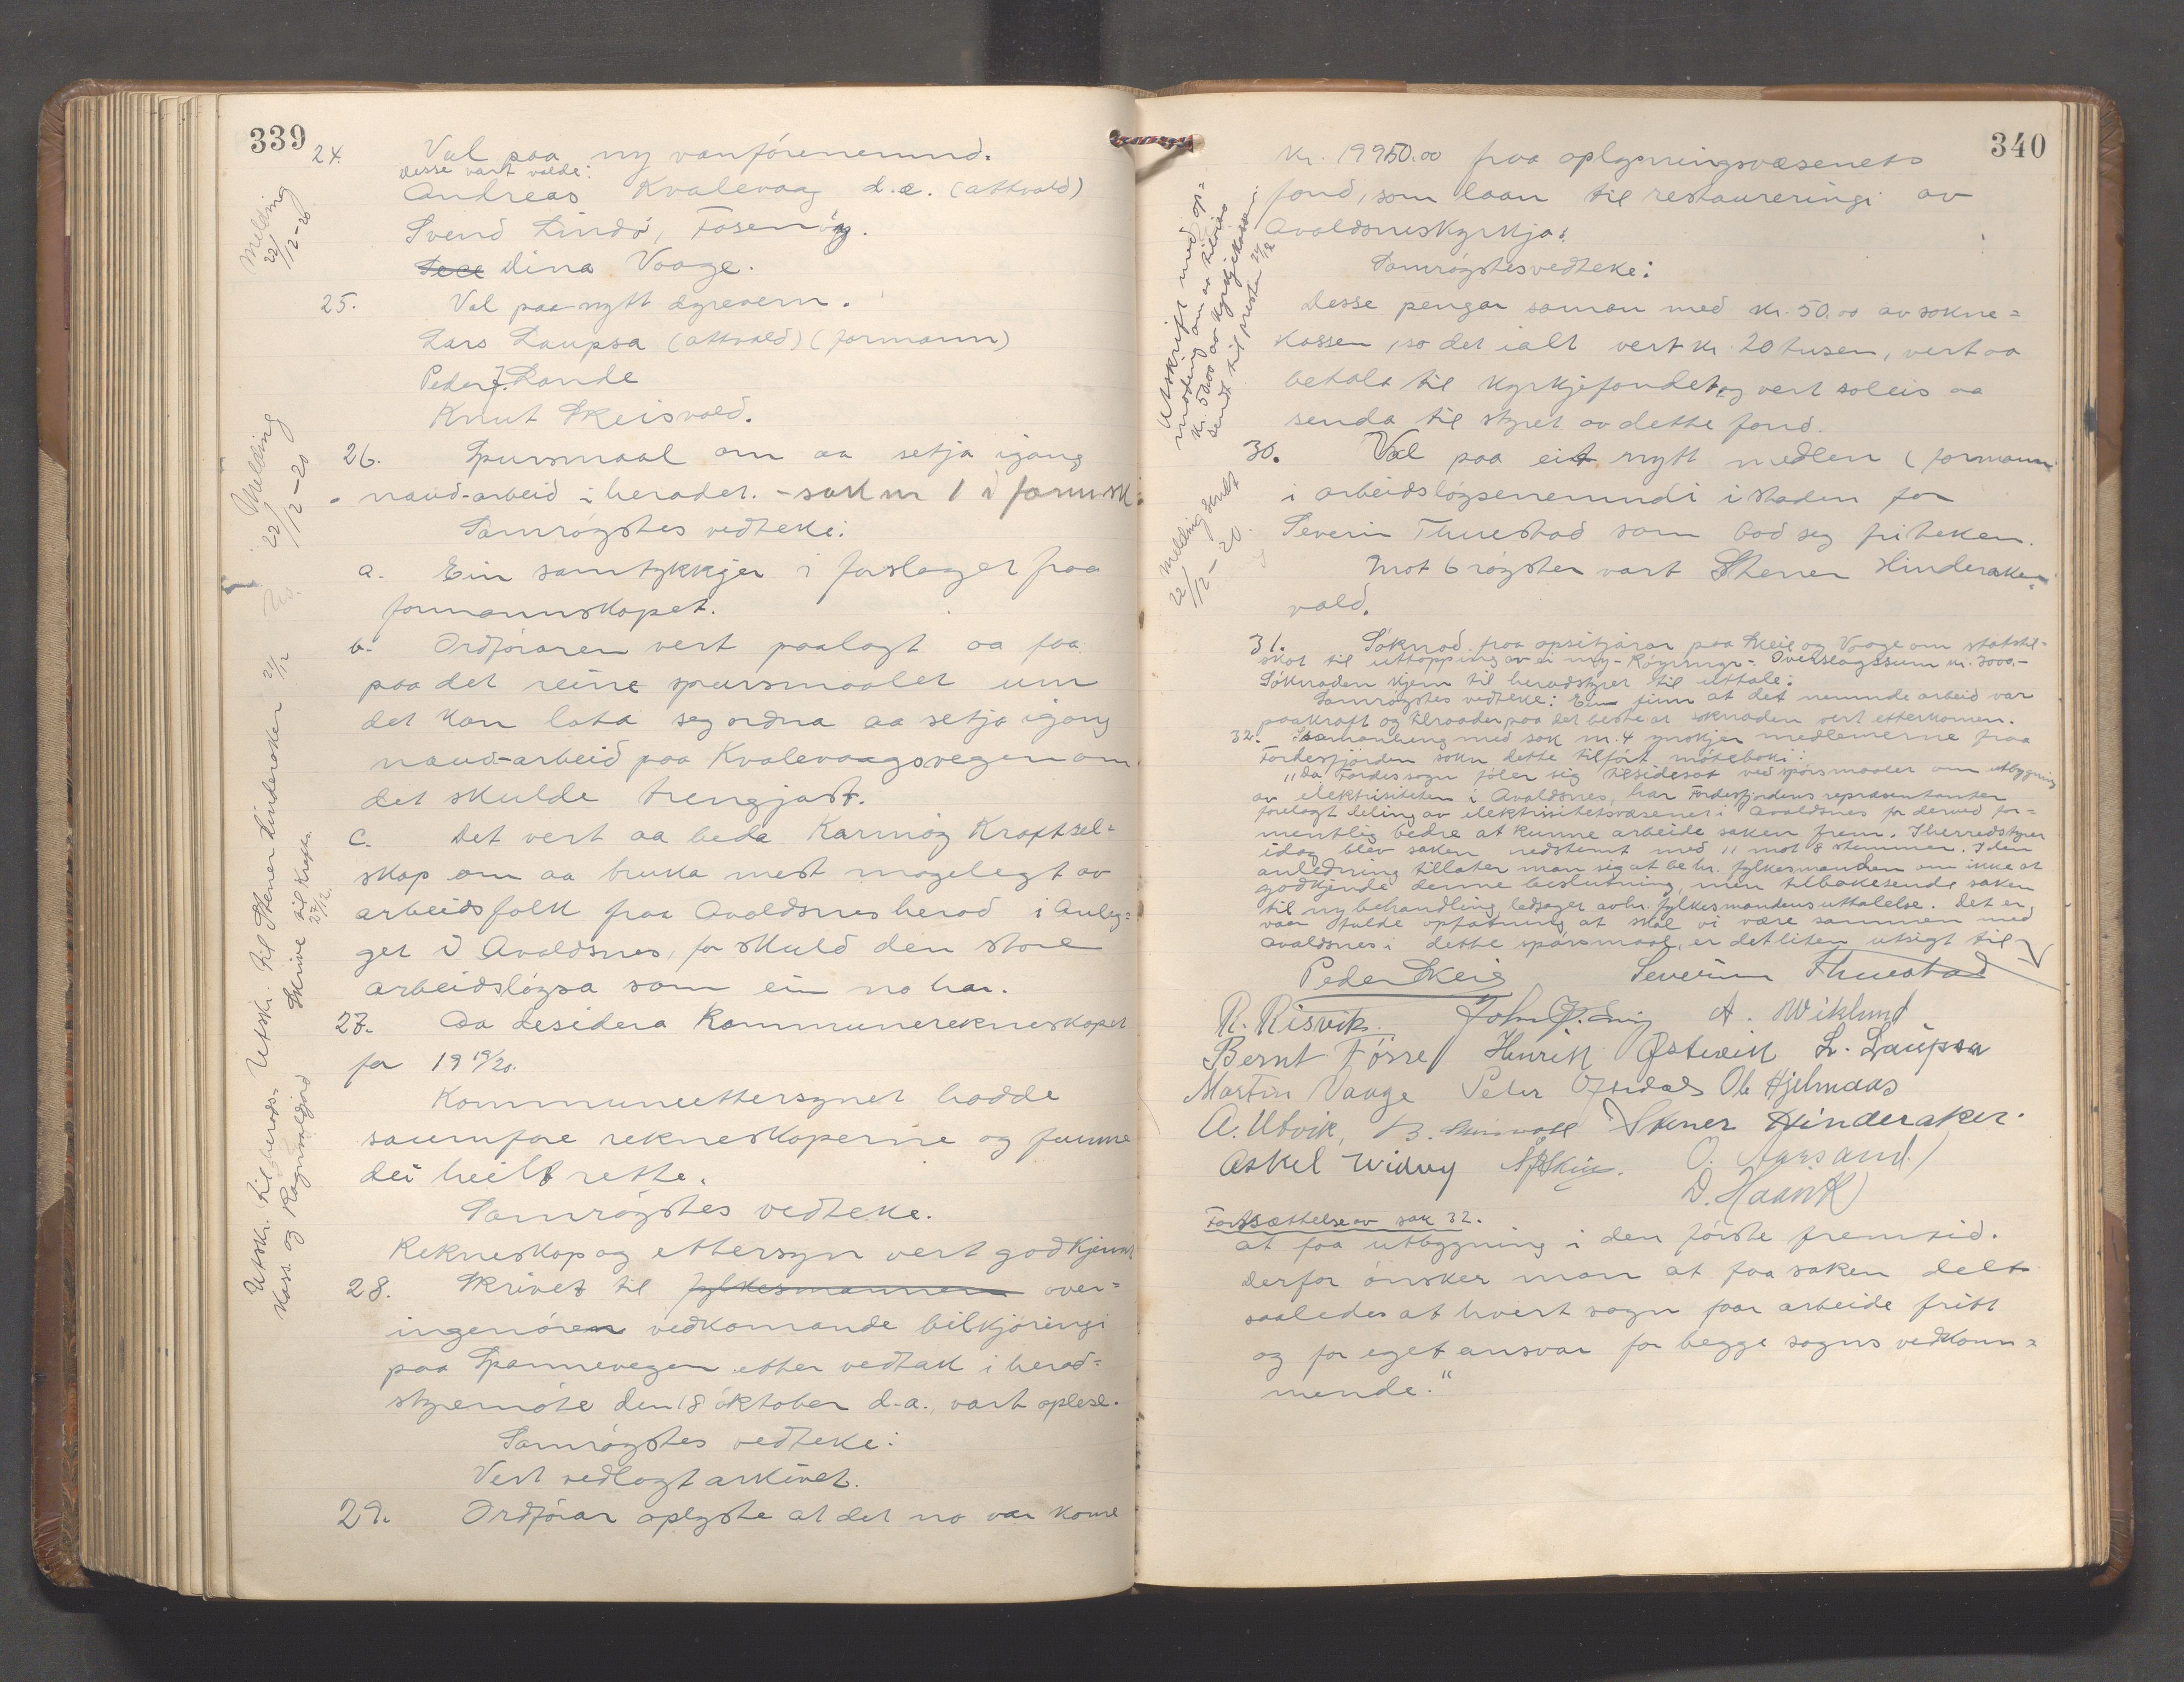 339
24. Val paa ny vanførenemnd.
Desse vart valde:
Andreas Kvalevaag d.e. (attvald)
Svend Lindø, Fosenøy.
Dina Vaage.
Melding
22/12-20
25. Val paa nytt dyrevern.
Lars Laupsa (attvald) (formann)
Peder J. Lande
Knut Skeisvold.
Melding
22/12-20
26. Spursmaal om aa setja igang
naud-arbeid i heradet. - sak nr 1 i formsk.
Samrøystes vedteke:
a. Ein samtykkjer i forslaget fraa
formannskapet.
b. Ordføraren vert paalagt aa faa
paa det reine spursmaalet um
det kan lata seg ordna aa setja igang
naud-arbeid paa Kvalevaagsvegen om
det skulde trengjast.
c. Det vert aa beda Karmøy Kraftsel-
skap om aa bruka mest mogelegt av
arbeidsfolk fraa Avaldsnes herad i Anleg-
get i Avaldsnes, for skuld den store
arbeidsløysa som ein no har.
Utskr. til herads- Utskr. til Stener Hinderaker 21/12
kass. og Ragnvaldjord Skrive til Krafts. 27/12.
27. Aa desidera Kommunerekneskapet
for 19 19/20.
Kommuneettersynet hadde
saumfare rekneskaperne og funne
dei heilt rette.
Samrøystes vedteke.
Rekneskap og ettersyn vert godkjennt
28. Skrivet til fylkesmannen over-
ingenøren vedkomande bilkjøringi
paa Spannevegen etter vedtak i herad-
styremøte den 18 oktober d.a., vart oplese.
Samrøystes vedteke:
Vert vedlagt arkivet.
29. Ordførar oplyste at det no var kome
340
Kr. 19950.00 fraa oplysningsvæsenets
fond, som laan til restaureringi av
Avaldsneskyrkja.
Samrøystesvedteke:
Desse pengar saman med kr. 50.00 av sokne-
kassen, so det ialt vert kr 20 tusen, vert aa
betala til kyrkjefondet, og vert soleis aa
senda til styret av dette fond.
Utskrift med op-
moding om aa tilvisa
kr. 50.00 av kyrkjekassen
sendt til presten 21/12
30. Val paa eit nytt medlem (formann
i arbeidsløysenemndi i staden for
Severin Thuestad som bad seg friteken.
Mot 6 røyster vart Stener Hinderaker
vald.
Melding sendt
22/12-20.
31. Søknad fraa opsitjarar paa Skeie og Vaage om statstil-
skot til uttapping av ei myr - Røyrmyr - Overslagssum kr. 3000.-
Søknaden kjem til heradstyret til uttale:
Samrøystes vedteke: Ein finn at det nemnde arbeid var
paakraft og tilraader paa det beste at søknaden vert etterkomen.
32. I samanheng med sak nr. 4 ynskjer medlemerne fraa
Førdesfjorden sokn dette tilført møteboki:
"Da Førdes sogn føler sig tilsidesat ved spørsmaalet om utbygning
av elektrisiteten i Avaldsnes, har Førdesfjordens repræsentanter
forelagt deling av elektrisitetsvæsenet i Avaldsnes for derved for-
mentlig bedre at kunne arbeide saken frem. I herredstyret
idag blev saken nedstemt med 11 mot 8 stemmer. I den
anledning tillater man sig at be hr. fylkesmanden om ikke at
godkjende denne beslutning, men tilbakesende saken
til ny behandling ledsaget av hr. fylkesmandens uttalelse. Det er
vaar fulde opfatning, at skal vi være sammen med
Avaldsnes i dette spørsmaal, er det liten utsigt til
Peder Skeie Severin Thuestad
R. Risvik. A. Wiklund
Bernt Førre Henrik Østevik L. Laupsa
Martin Vaage Peder Ole Hjelmaas
A. Utvik, Stener Hinderaker.
Askel Widvey O. Aarsand.
D. Haavik
Fortsættelse av sak 32.
at faa utbygning i den første fremtid.
Derfor ønsker man at faa saken delt
saaledes at hvert sogn faar arbeide fritt
og for eget ansvar for begge sogns vedkom-
mende."